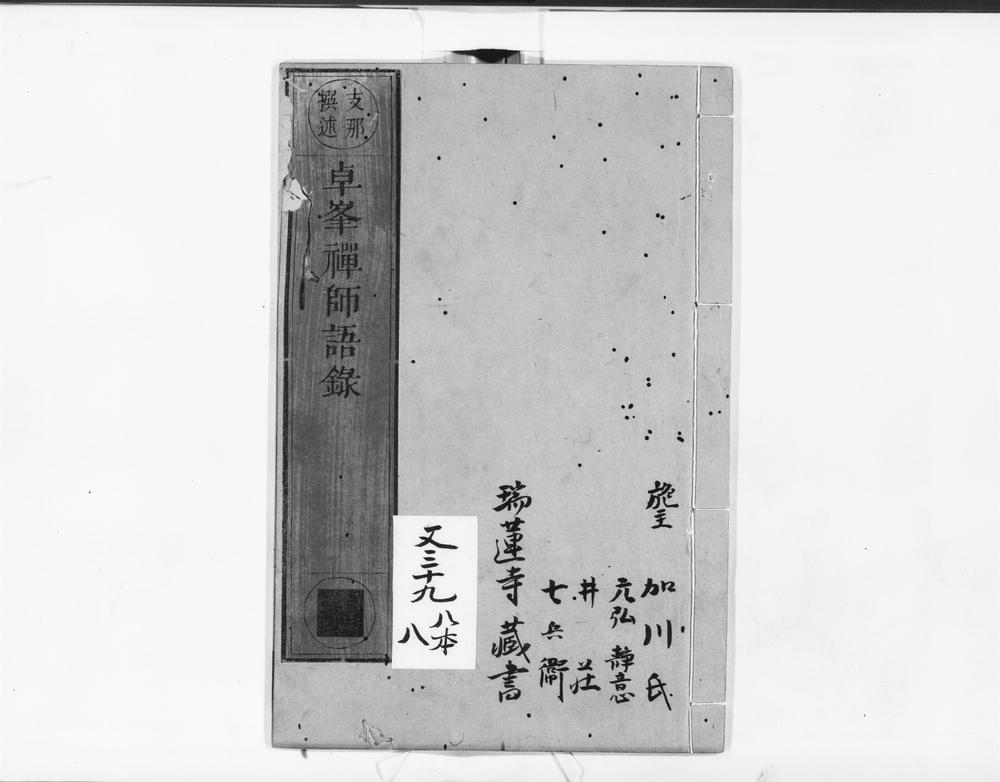 施主
加川氏
元弘 静意
井 荘
七兵衛
瑞蓮寺藏書
支那
撰述
卓峯禪師語錄
又三十九
八本
八